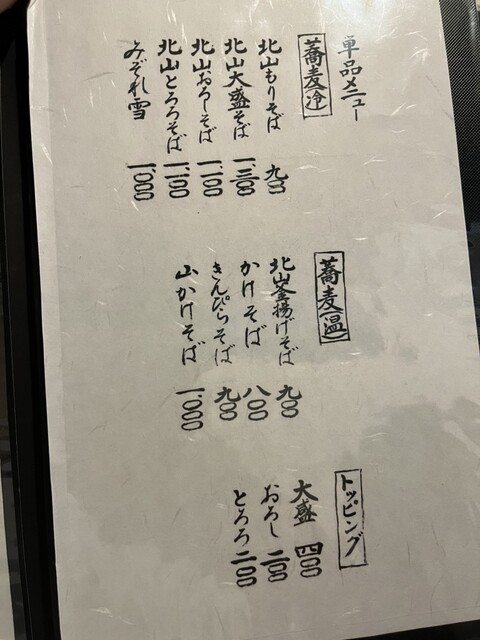 単品メニュー
蕎麦(冷)
北山もりそば 九〇〇
北山大盛そば 一、三〇〇
北山おろしそば 一、一〇〇
北山とろろそば 一、一〇〇
みぞれ雪 一、〇〇〇
蕎麦(温)
北山釜揚げそば 九〇〇
かけそば 八〇〇
きんぴらそば 九〇〇
山かけそば 一、〇〇〇
トッピング
大盛 四〇〇
おろし 二〇〇
とろろ 二〇〇